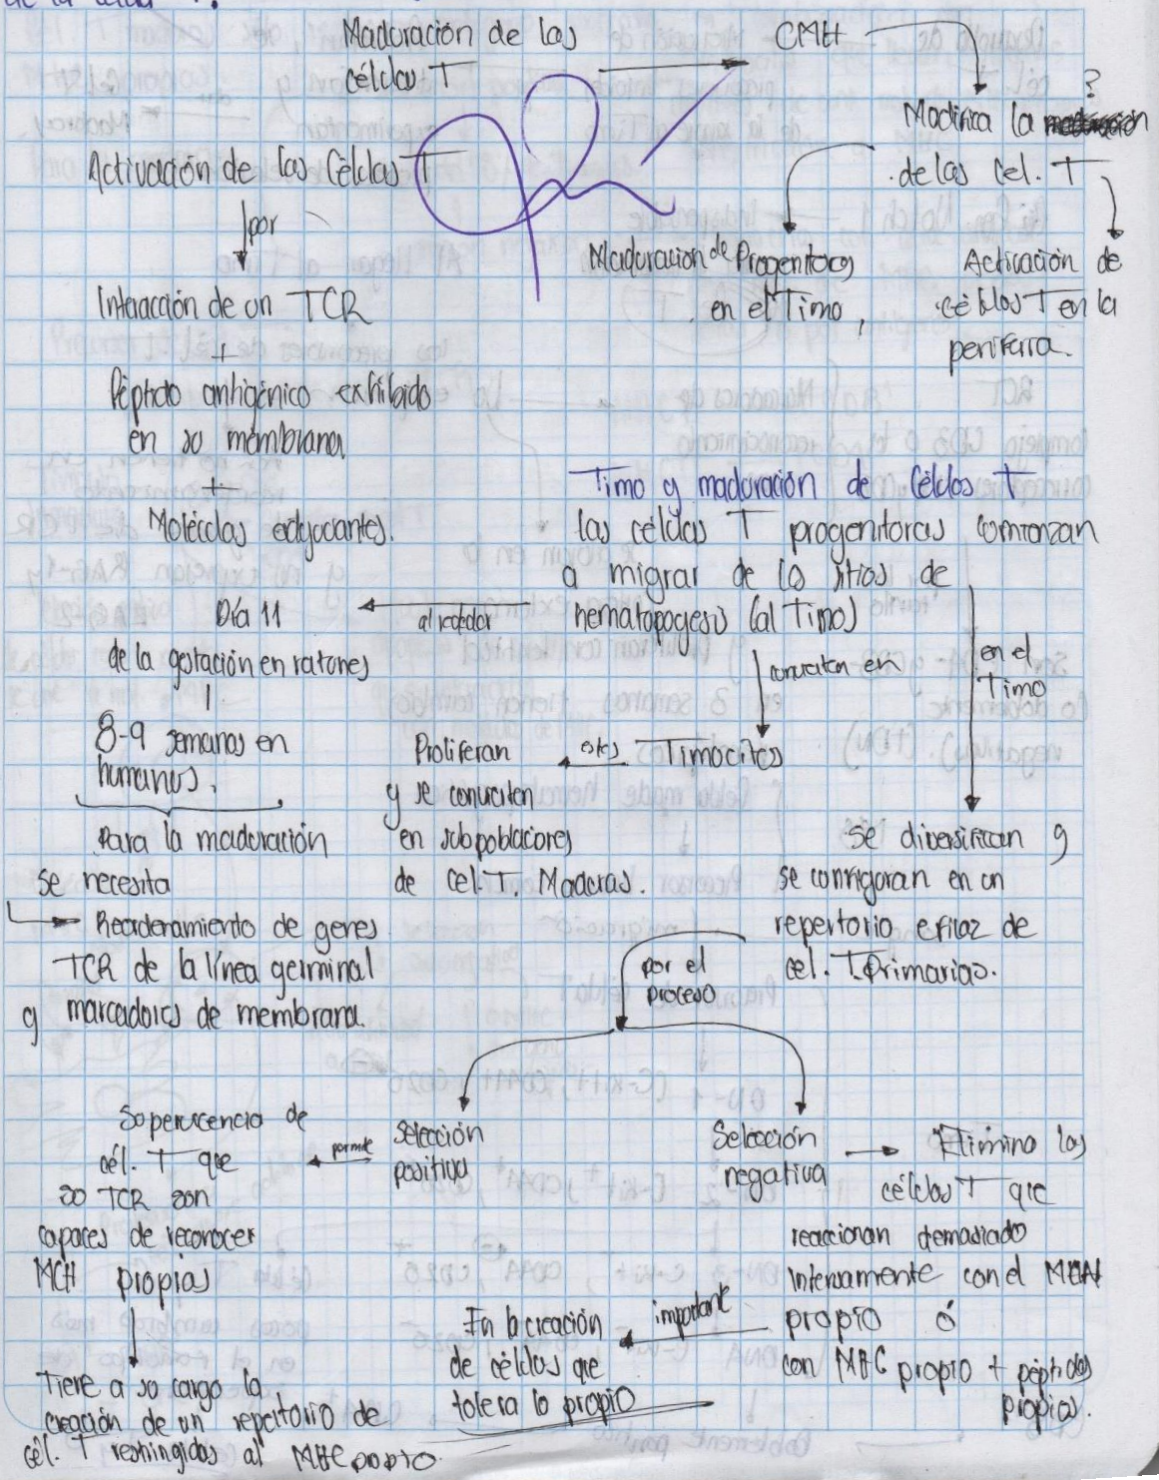 de la célula T.
Maduración de las
células T
CMH
?
Modifica la
de las Cel. T
Activación de las Células T
por
Maduración de Progenitoras
en el Timo,
Activación de
células T en la
periferia.
Interacción de un TCR
+
Péptido antigénico exhibido
en su membrana
+
Moléculas adyuvantes.
Timo y maduración de Células T
las células T progenitoras comienzan
a migrar de lo sitios de
hematopoyesis (al Timo)
al rededor
Día 11
de la gestación en ratones
8-9 semanas en
humanos.
Para la maduración
se necesita
Reordenamiento de genes
TCR de la línea germinal
y marcadores de membrana.
convierten en
Timocitos
estos
Proliferan
y se convierten
en subpoblaciones
de cel. T. Maduras.
en el
Timo
se diversifican y
se configuran en un
repertorio eficaz de
cel. T. Primarias.
por el
proceso
Selección
positiva
permite
Supervicencia de
cél. T que
su TCR son
capaces de reconocer
MCH propias
Tiene a su cargo la
creación de un repertorio de
cél. T restringidas al MHC propio.
Selección
negativa
Elimina las
células T que
reaccionan demasiado
intensamente con el MHA
propio ó
con MHC propio + péptidos
propios.
importante
En la creación
de células que
tolera lo propio